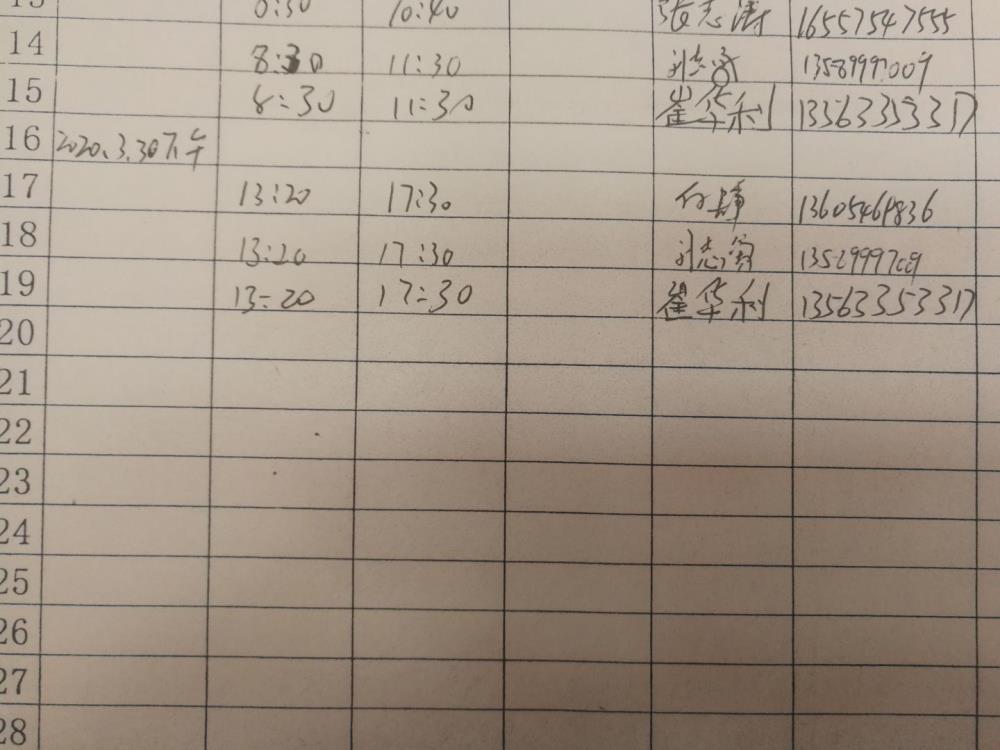 13 8:30 10:40 张志涛 16557547555
14 8:30 11:30 13589997009
15 8:30 11:30 崔华利 13563353317
16 2020.3.30下午
17 13:20 17:30 13605464836
18 13:20 17:30
19 13:20 17:30 崔华利 13563353317
20
21
22
23
24
25
26
27
28